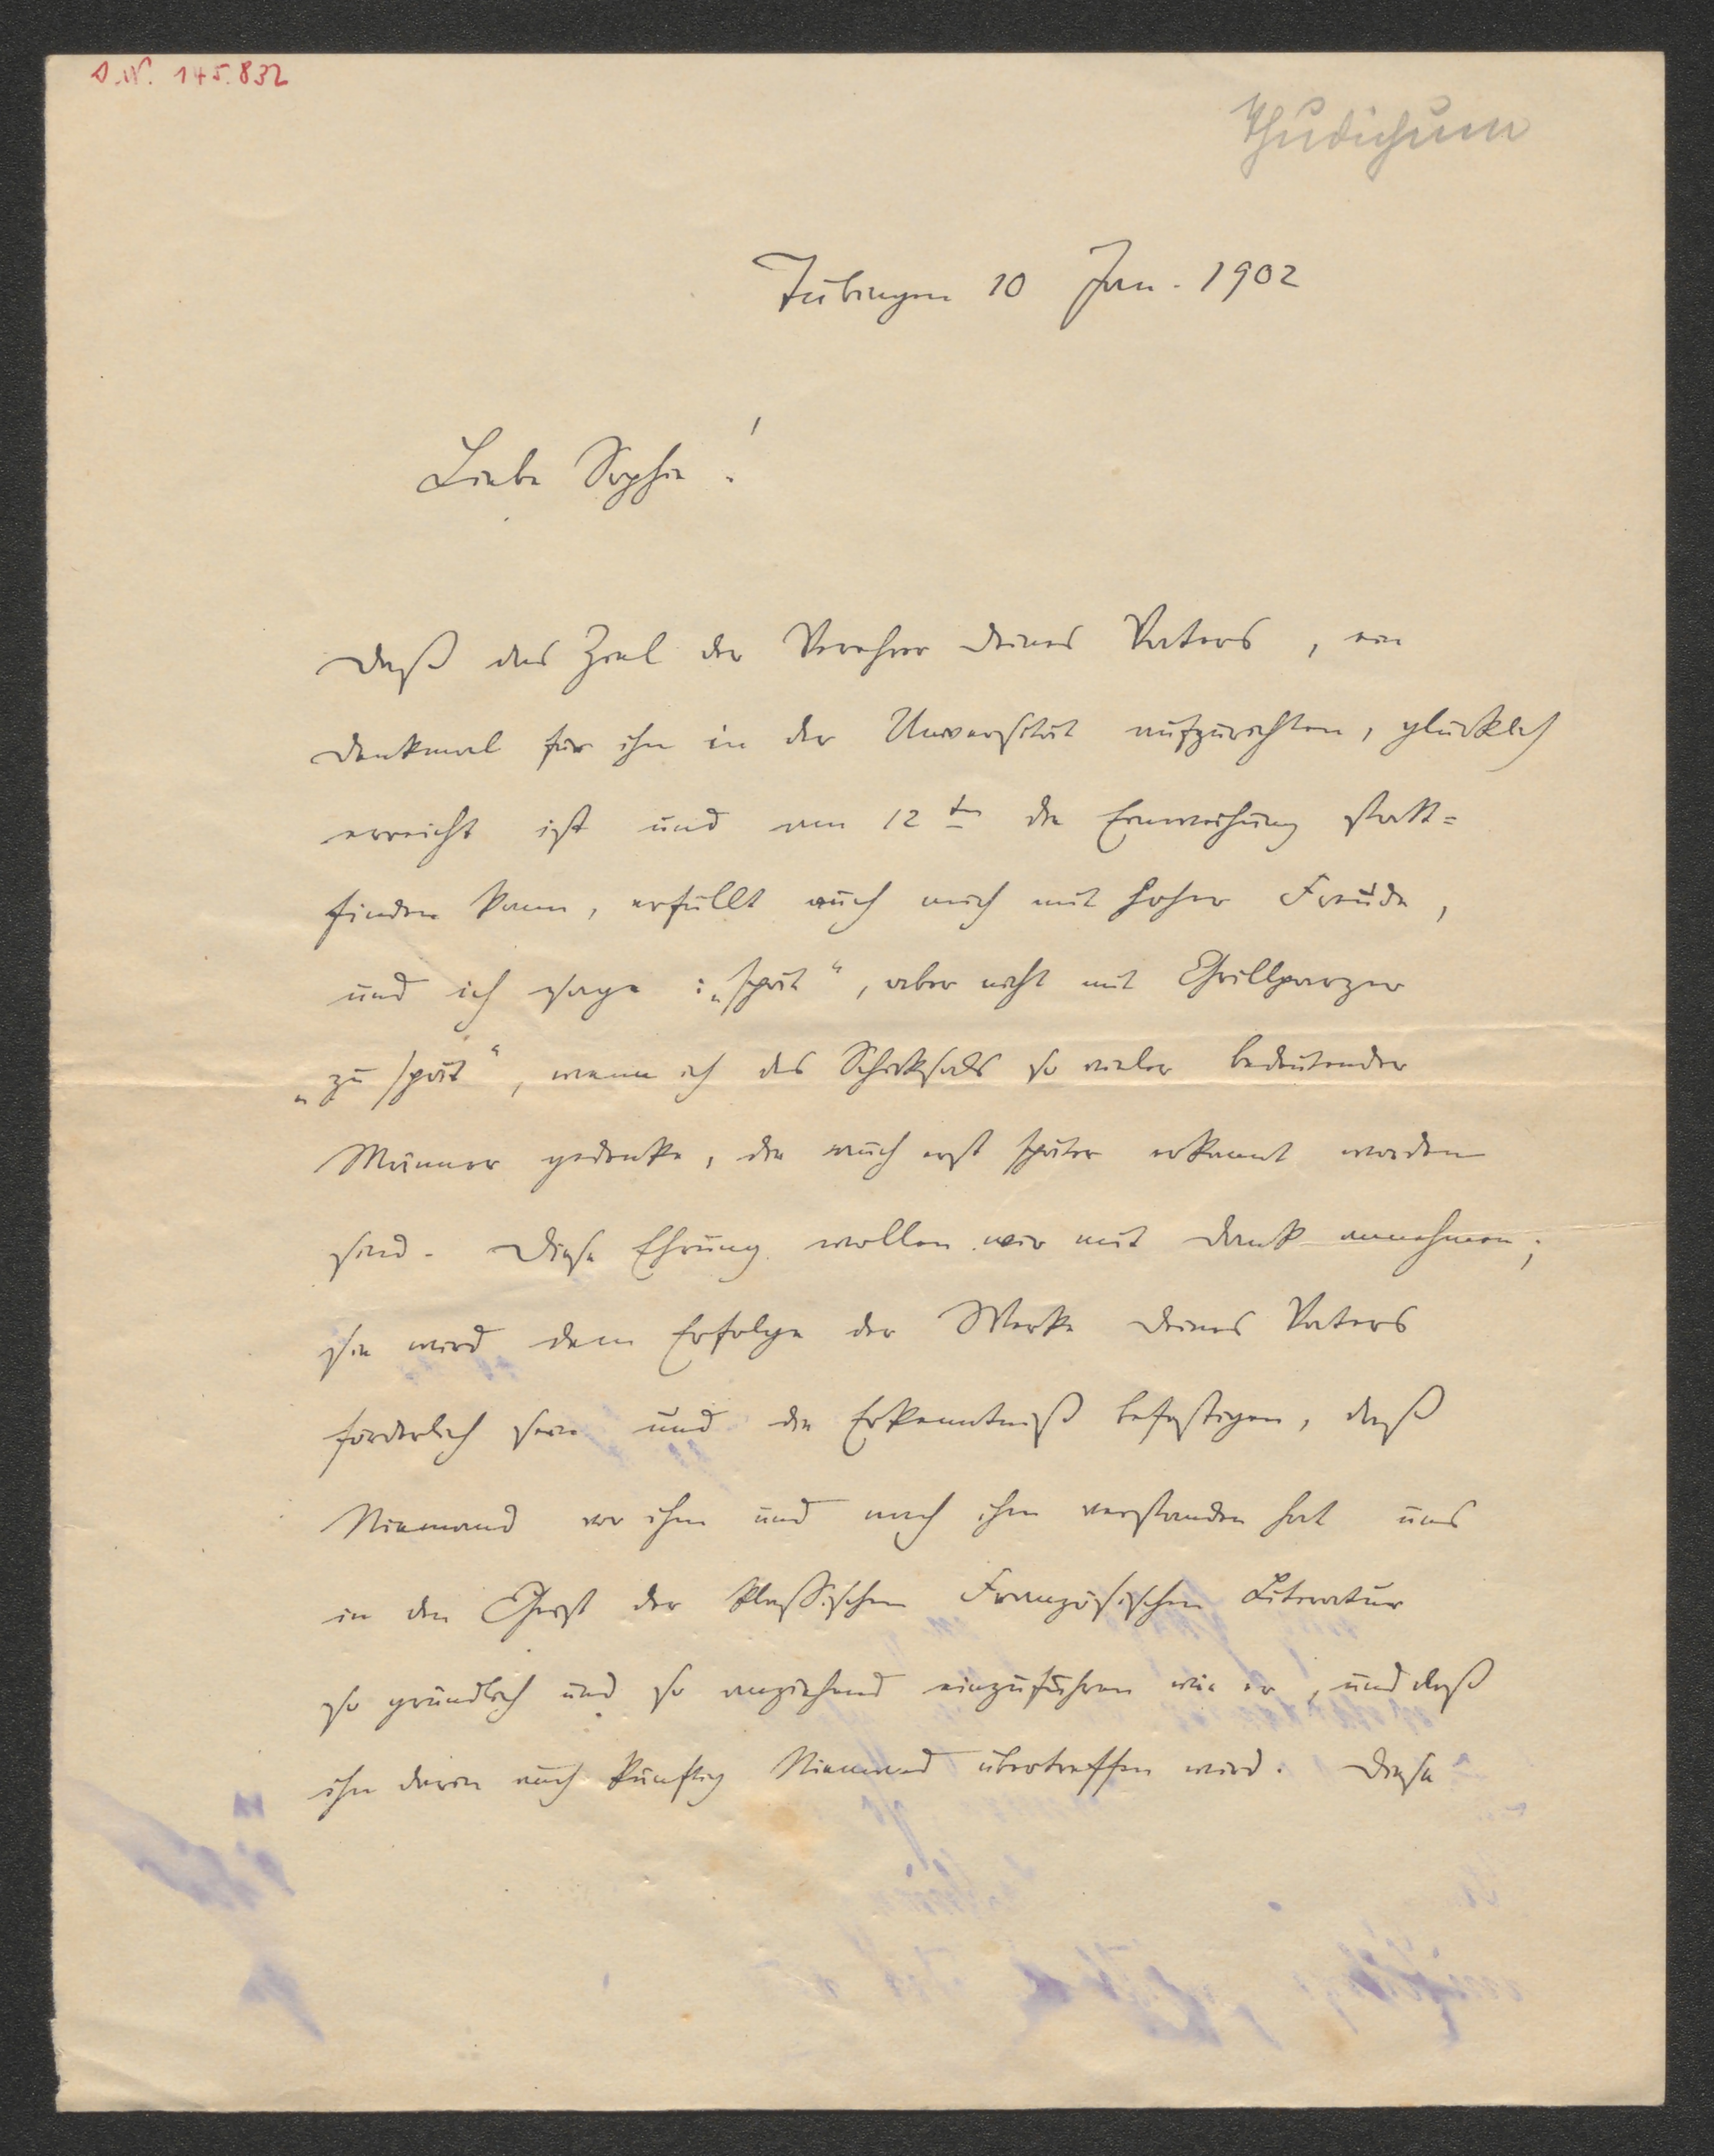 D.N. 145.832
Thudichum
Tübingen 10 Jan. 1902
Liebe Sophie!
Daß das Ziel der Verehrer Deines Vaters, ein
Denkmal für ihn in der Universität aufzurichten, glücklich
erreicht ist und am 12ten die Einweihung statt=
finden kann, erfüllt auch mich mit hoher Freude,
und ich sage: „spät“, aber nicht mit Grillparzer
„zu spät“, wenn ich des Schicksals so vieler bedeutender
Männer gedenke, die auch erst später erkannt worden
sind. Diese Ehrung wollen wir mit Dank annehmen;
sie wird dem Erfolge der Werke Deines Vaters
förderlich sein und die Erkenntniß befestigen, daß
Niemand vor ihm und nach ihm verstanden hat uns
in den Geist der klassischen Französischen Literatur
so gründlich und so anziehend einzuführen wie er, und daß
ihn darin auch künftig Niemand übertreffen wird. Diese